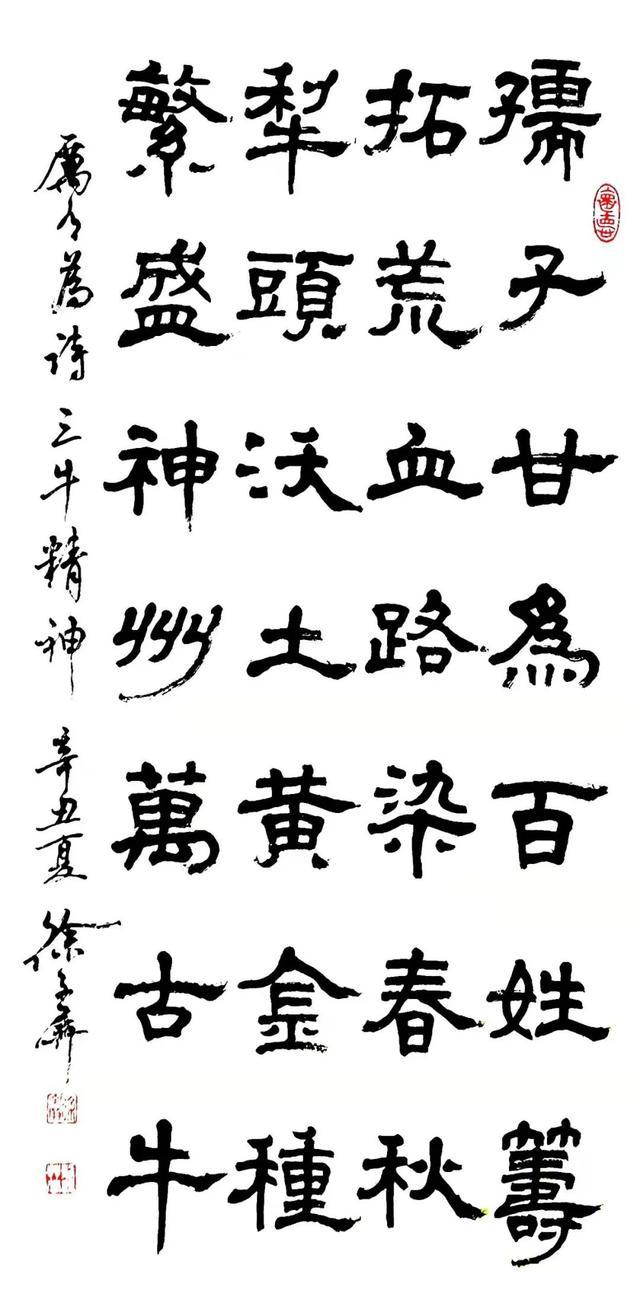 孺子甘為百姓籌
拓荒血路染春秋
犁頭沃土黃金種
繁盛神州萬古牛
厲有為詩三牛精神辛丑夏徐子